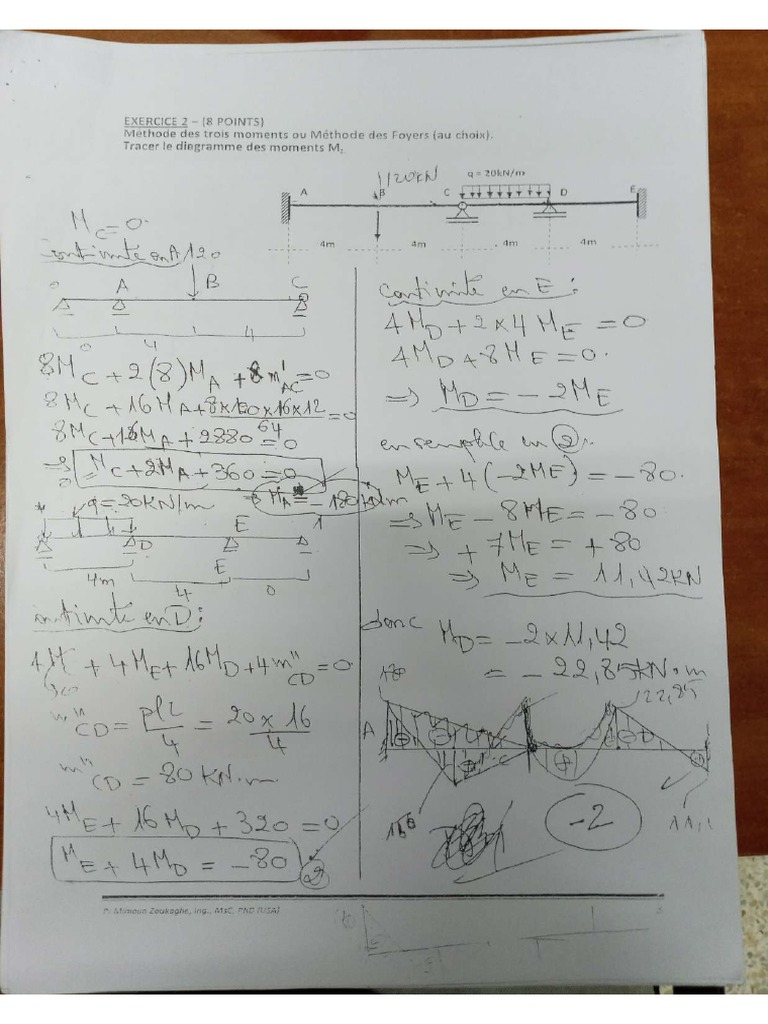 EXERCICE 2 – (8 POINTS)
Méthode des trois moments ou Méthode des Foyers (au choix).
Tracer le diagramme des moments M.
120kN
q = 20kN/m
A B C D E
4m 4m 4m 4m
M_C = 0.
continuité en A 120
0 A B C
0 4 4
8M_C + 2(8)M_A + 8m'_AC = 0
8M_C + 16M_A + 8x120x16x12/64 = 0
8M_C + 16M_A + 2880 = 0
=> M_C + 2M_A + 360 = 0
=> M_A = -180 kN.m
q = 20KN/m
D E
4m 4 0
continuité en D:
4M_C + 4M_E + 16M_D + 4m''_CD = 0
m''_CD = pl2/4 = 20 x 16/4
m''_CD = 80 KN.m.
4M_E + 16M_D + 320 = 0
M_E + 4M_D = -80 2
continuité en E:
4M_D + 2x4M_E = 0
4M_D + 8M_E = 0.
=> M_D = -2M_E
en 2:
M_E + 4(-2M_E) = -80.
=> M_E - 8M_E = -80
=> +7M_E = +80
=> M_E = 11,42KN
donc M_D = -2x11,42
= -22,85KN.m
180
22,85
A
C
-2
P. Mimoun Zoukaghe, Ing., MsC, PhD (USA)